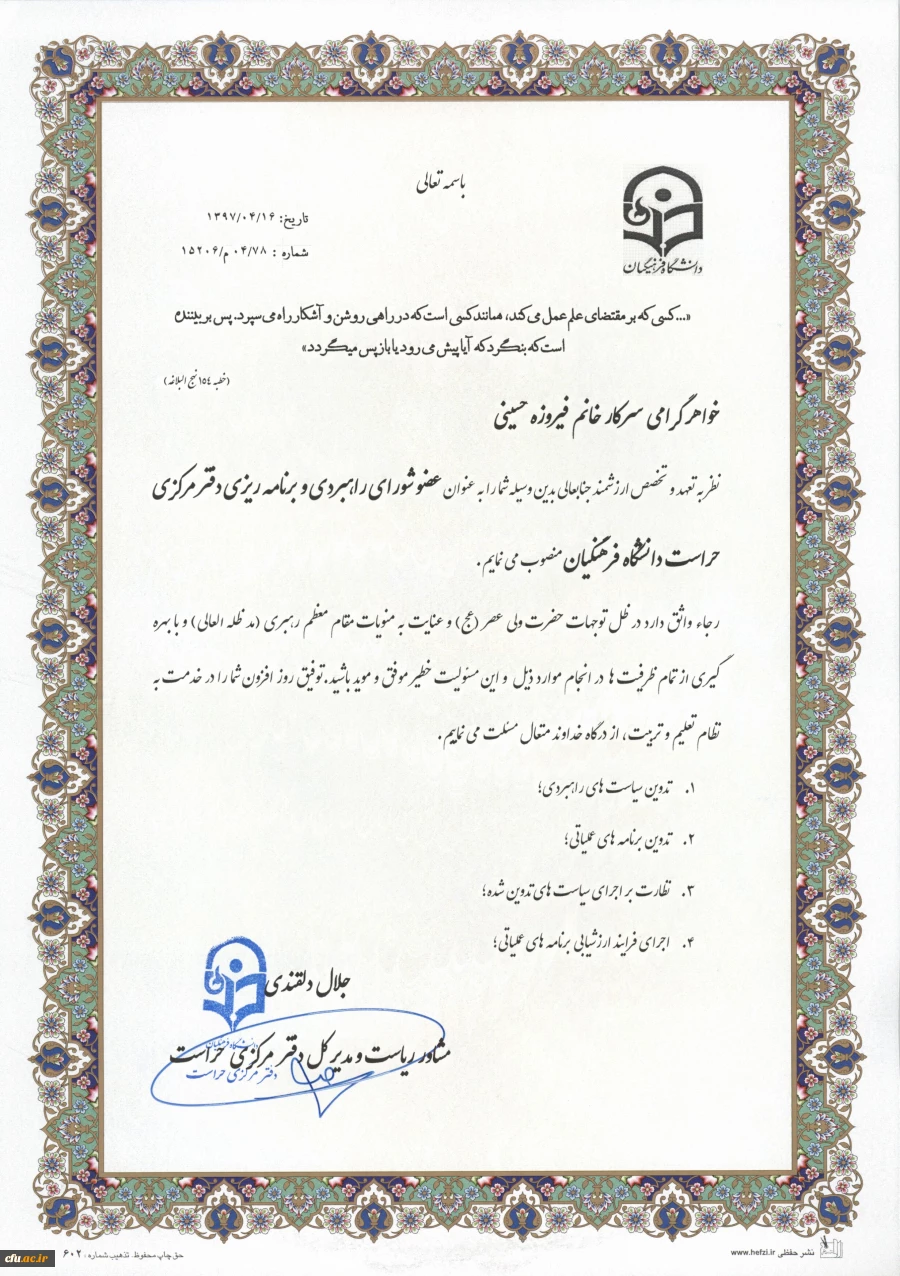 باسمه تعالی
دانشگاه فرهنگیان
تاریخ: ۱۳۹۷/۰۴/۱۶
شماره : ۰۴/۷۸ م/۱۵۲۰۶
«...کسی که بر مقتضای علم عمل می کند، همانند کسی است که در راهی روشن و آشکار راه می سپرد. پس بر بیننده
است که بنگرد که آیا پیش می رود یا باز پس میگردد»
(خطبه ۱۵٤ نهج البلاغه)
خواهر گرامی سرکار خانم فیروزه حسینی
نظر به تعهد و تخصص ارزشمند جنابعالی بدین وسیله شما را به عنوان عضو شورای راهبردی و برنامه ریزی دفتر مرکزی
حراست دانشگاه فرهنگیان منصوب می نمایم.
رجاء واثق دارد در ظل توجهات حضرت ولی عصر (عج) و عنایت به منویات مقام معظم رهبری (مد ظله العالی) و با بهره
گیری از تمام ظرفیت ها در انجام موارد ذیل و این مسئولیت خطیر موفق و موید باشید. توفیق روز افزون شما را در خدمت به
نظام تعلیم و تربیت، از درگاه خداوند متعال مسئلت می نماییم.
۱. تدوین سیاست های راهبردی؛
۲. تدوین برنامه های عملیاتی؛
۳. نظارت بر اجرای سیاست های تدوین شده؛
۴. اجرای فرایند ارزشیابی برنامه های عملیاتی؛
جلال دلقندی
مشاور ریاست و مدیر کل دفتر مرکزی حراست
دانشگاه فرهنگیان
دفتر مرکزی حراست
نشر حفظی www.hefzi.ir
حق چاپ محفوظ. تذهیب شماره: ۶۰۲
cfu.ac.ir